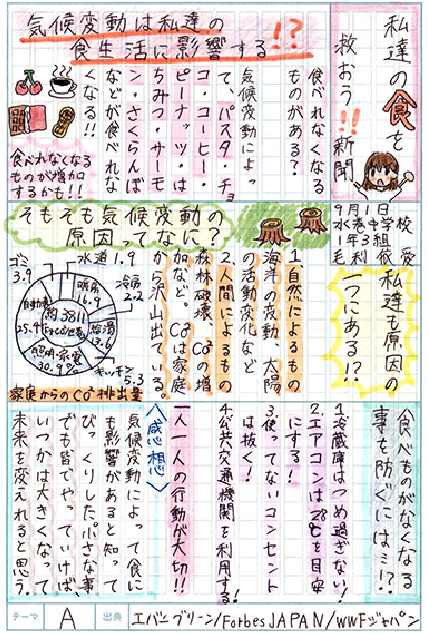 私達の食を
救おう!!新聞
9月1日
水巻中学校
1年3組
毛利 愛
気候変動は私達の
食生活に影響する!?
食べれなくなる
ものがある?
気候変動によっ
て、パスタ・チョ
コ・コーヒー・
ピーナッツ・は
ちみつ・サーモ
ン・さくらんぼ
などが食べれな
くなる!!
食べれなくなる
ものが増加
するかも!!
私達も原因の
一つにある!?
そもそも気候変動の
原因ってなに?
1.自然によるもの
海洋の変動、太陽
の活動変化など
2.人間によるもの
森林破壊、CO²の増
加など。CO²は家庭
から沢山出ている。
ゴミ
3.9
水道1.9
冷房
2.2
暖房
16.9
自動車
25.4
約3811
kgCO²/世帯
給湯
13.6
照明・家電
30.9%
キッチン
5.3
家庭からのCO²排出量
食べものがなくなる
事を防ぐには…!?
1.冷蔵庫はつめ過ぎない!
2.エアコンは28℃を目安
にする!
3.使ってないコンセント
は抜く!
4.公共交通機関を利用する!
一人一人の行動が大切!!
〈感想〉
気候変動によって食に
も影響があると知って
びっくりした。小さな事
でも皆でやっていけば、
いつかは大きくなって
未来を変えれると思う。
テーマ A 出典 エバーグリーン/Forbes JAPAN/WWFジャパン